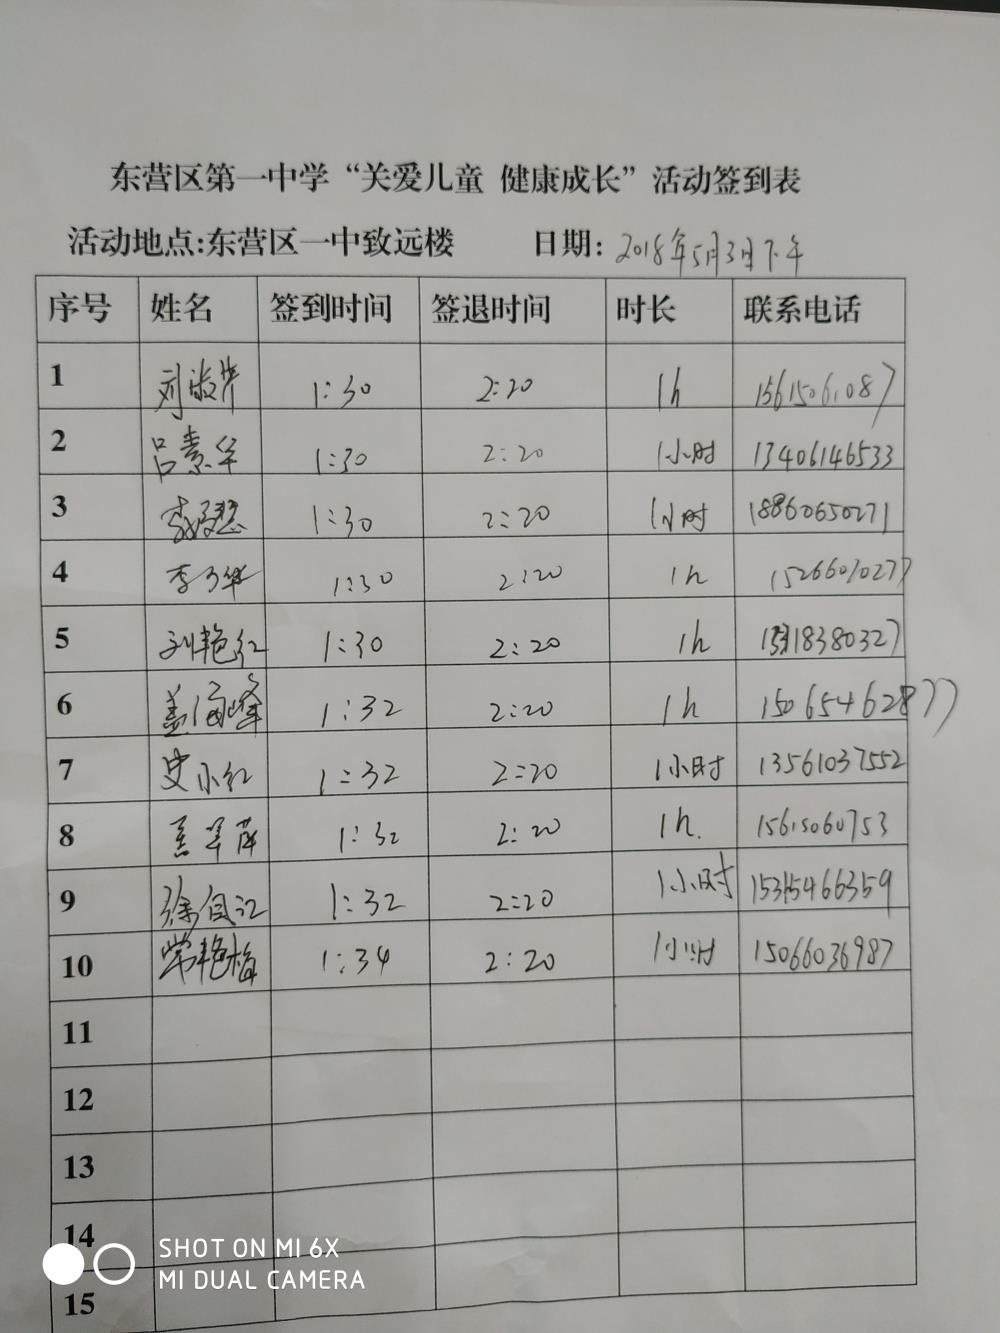 东营区第一中学“关爱儿童 健康成长”活动签到表
活动地点:东营区一中致远楼 日期: 2018年5月3日下午
序号 姓名 签到时间 签退时间 时长 联系电话
1 刘淑芹 1:30 2:20 1h 15615061087
2 吕素华 1:30 2:20 1小时 13406146533
3 1:30 2:20 1小时 18860650271
4 1:30 2:20 1h 15266010277
5 刘艳红 1:30 2:20 1h
6 盖海峰 1:32 2:20 1h 15065462877
7 史小红 1:32 2:20 1小时 13561037552
8 1:32 2:20 1h. 15615060753
9 徐自江 1:32 2:20 1小时 15315466359
10 常艳梅 1:34 2:20 1小时 15066036987
11
12
13
14
15
SHOT ON MI 6X
MI DUAL CAMERA